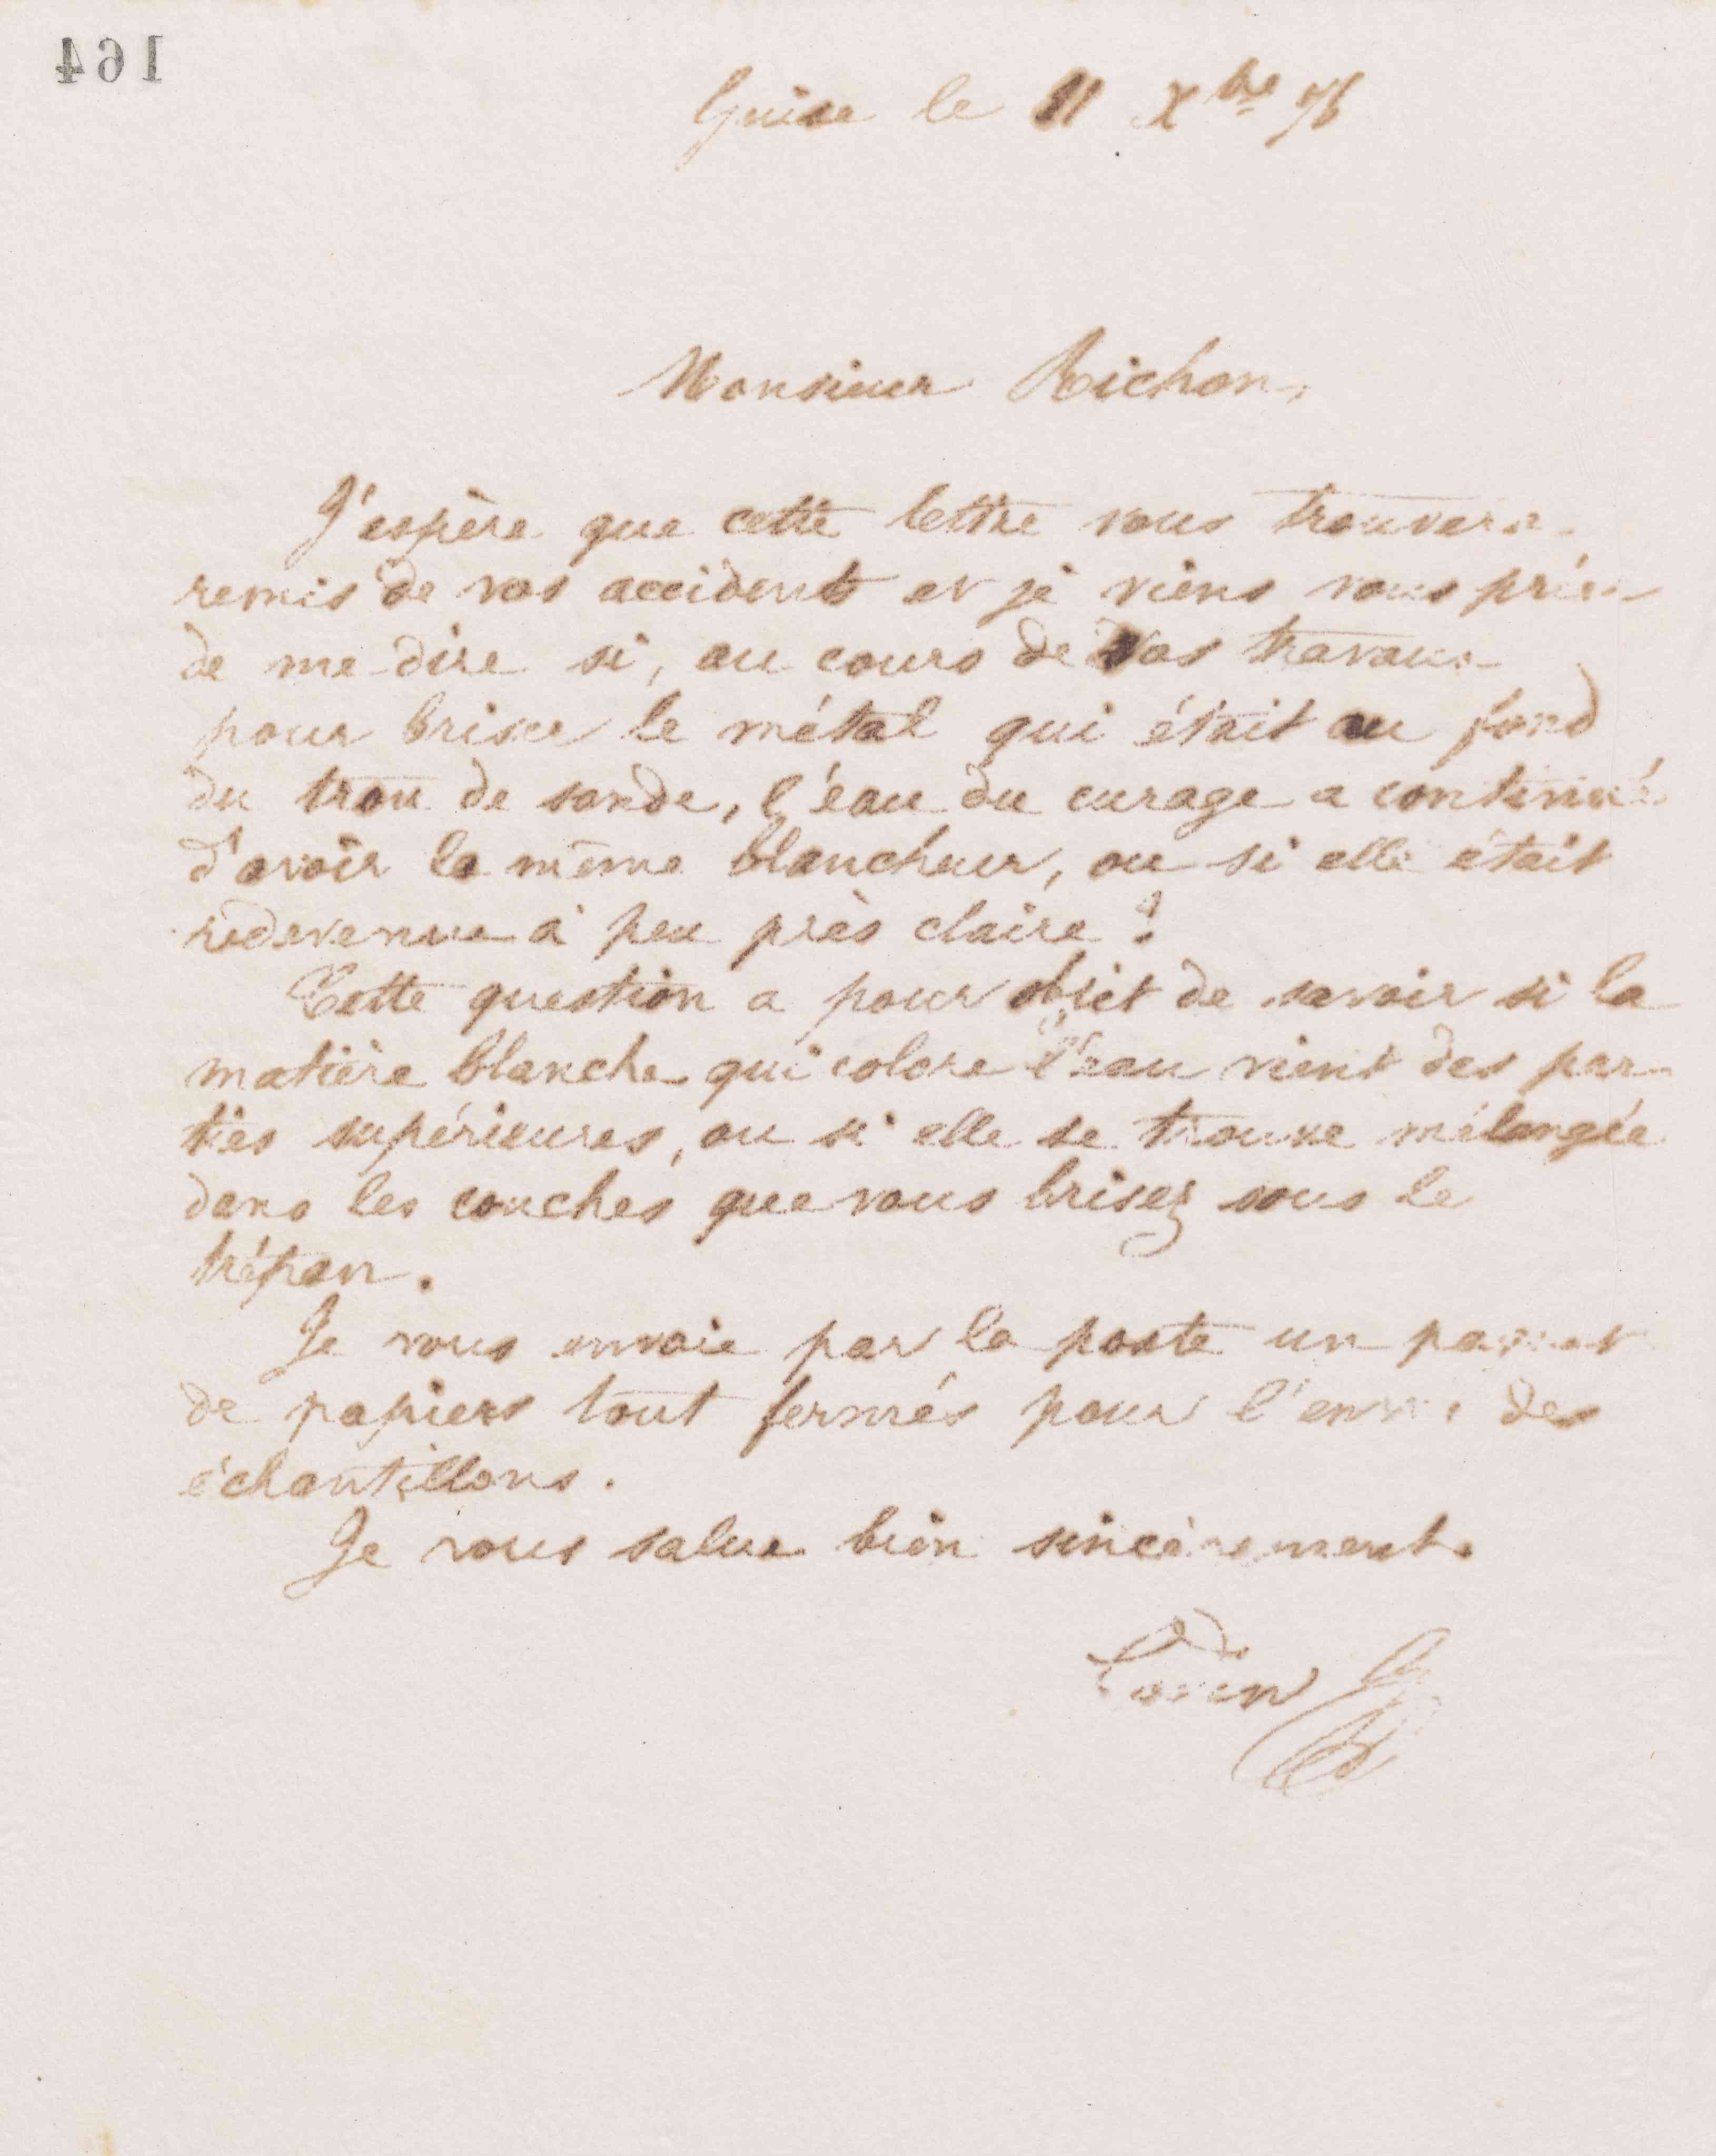 164
Guise le 11 Xbre 76
Monsieur Richon,
J'espère que cette lettre vous trouvera
remis de vos accidents et je viens vous prier
de me dire si, au cours de vos travaux
pour briser le métal qui était au fond
du trou de sonde, l'eau du curage a continué
d'avoir la même blancheur, ou si elle était
redevenue à peu près claire ?
Cette question a pour objet de savoir si la
matière blanche qui colore l'eau vient des par-
ties supérieures, ou si elle se trouve mélangée
dans les couches que vous brisez sous le
trépan.
Je vous envoie par la poste un paquet
de papiers tout fermés pour l'envoi des
échantillons.
Je vous salue bien sincèrement.
Godin